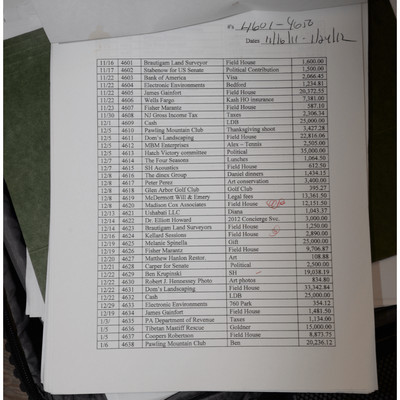 4601-4650
Dates 11/16/11 - 1/24/12
11/16 4601 Brautigam Land Surveyor Field House 1,600.00
11/17 4602 Stabenow for US Senate Political Contribution 1,500.00
11/22 4603 Bank of America Visa 2,066.45
11/22 4604 Electronic Environments Bedford 1,234.81
11/22 4605 James Gainfort Field House 20,372.55
11/22 4606 Wells Fargo Kash HO insurance 7,381.00
11/22 4607 Fisher Marantz Field House 587.10
11/30 4608 NJ Gross Income Tax Taxes 2,306.34
12/1 4609 Cash LDB 25,000.00
12/5 4610 Pawling Mountain Club Thanksgiving shoot 3,427.28
12/5 4611 Dom's Landscaping Field House 22,816.06
12/5 4612 MBM Enterprises Alex – Tennis 2,505.00
12/5 4613 Hatch Victory committee Political 35,000.00
12/7 4614 The Four Seasons Lunches 1,064.50
12/7 4615 SH Acoustics Field House 612.50
12/8 4616 The dinex Group Daniel dinners 1,434.13
12/8 4617 Peter Perez Art conservation 3,400.00
12/8 4618 Glen Arbor Golf Club Golf Club 395.27
12/8 4619 McDermott Will & Emery Legal fees 13,361.50
12/8 4620 Madison Cox Associates Field House 12,151.50
12/13 4621 Ushabati LLC Diana 1,043.37
12/14 4622 Dr. Elliott Howard 2012 Concierge Svc. 3,000.00
12/14 4623 Brautigam Land Surveyors Field House 1,250.00
12/14 4624 Kellard Sessions Field House 2,890.00
12/19 4625 Melanie Spinella Gift 25,000.00
12/19 4626 Fisher Marantz Field House 9,706.87
12/20 4627 Matthew Hanlon Restor. Art 108.88
12/21 4628 Carper for Senate Political 2,500.00
12/22 4629 Ben Krupinski SH 19,038.19
12/22 4630 Robert Z. Hennessey Photo Art photos 834.80
12/22 4631 Dom's Landscaping Field House 33,342.84
12/22 4632 Cash LDB 25,000.00
12/29 4633 Electronic Environments 760 Park 354.12
12/19 4634 James Gainfort Field House 1,481.50
1/3/ 4635 PA Department of Revenue Taxes 1,134.00
1/5 4636 Tibetan Mastiff Rescue Goldner 15,000.00
1/5 4637 Coopers Robertson Field House 8,873.75
1/6 4638 Pawling Mountain Club Ben 20,236.12